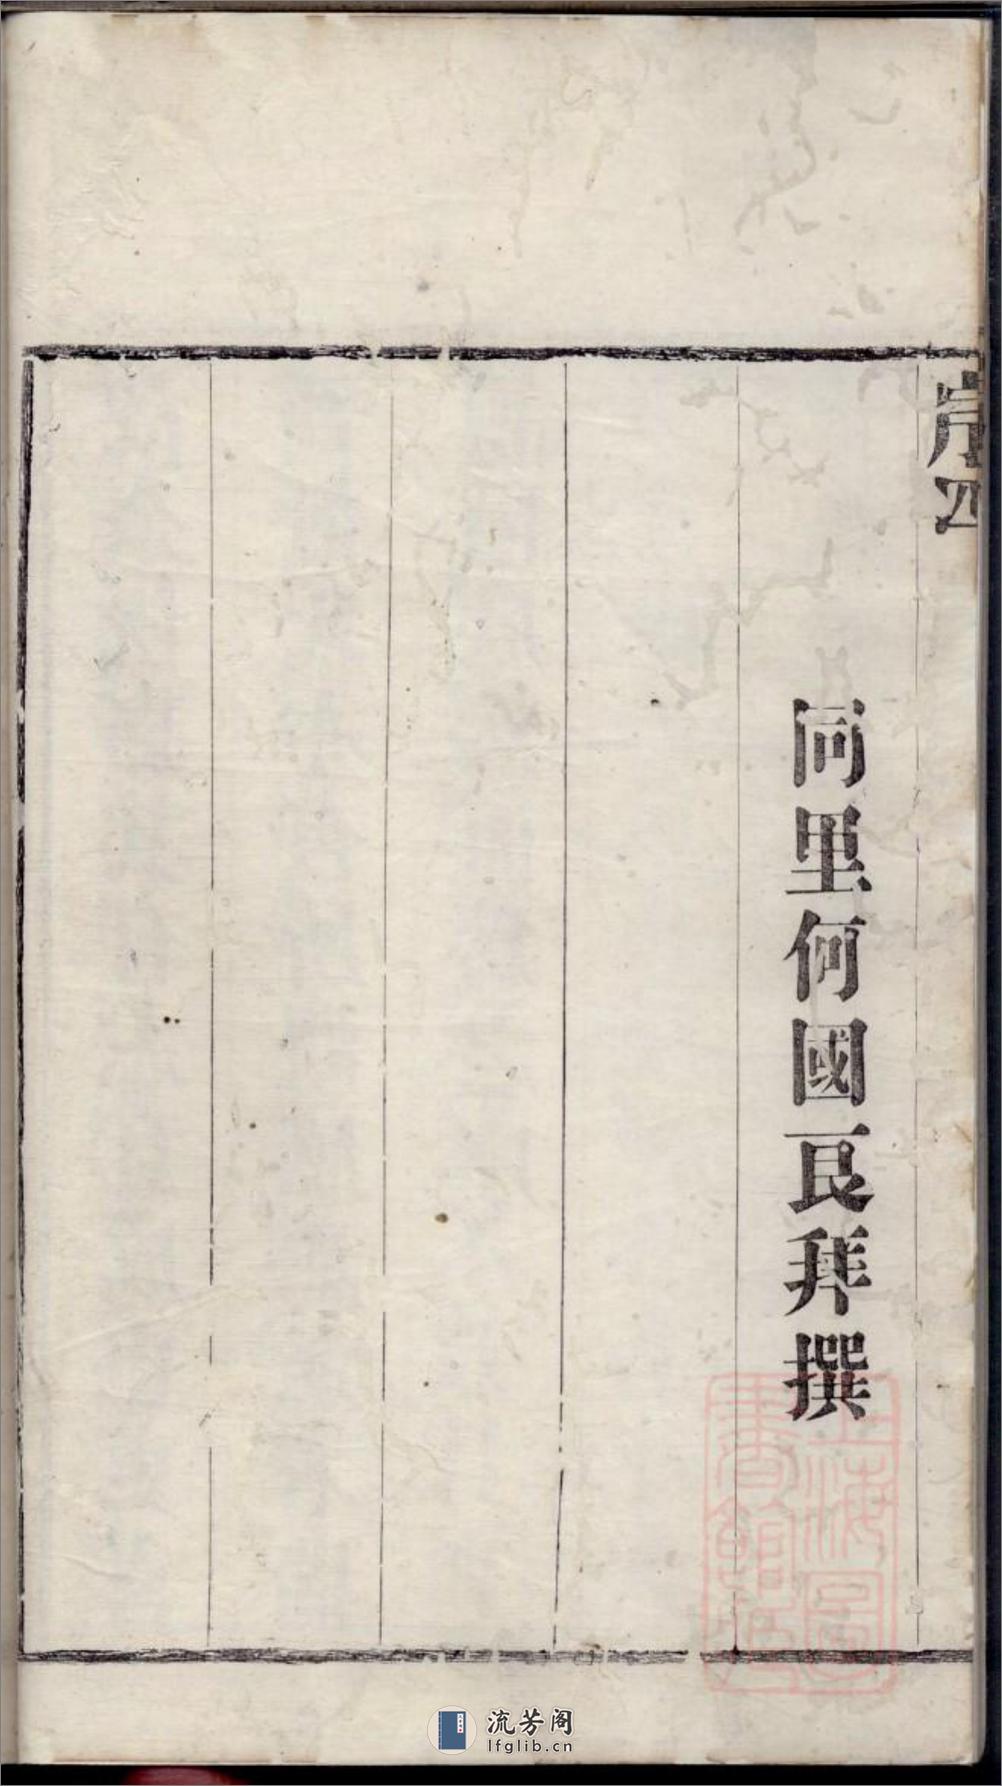 序四
同里何國良拜撰
上海圖
書館藏
流芳阁
lfglib.cn